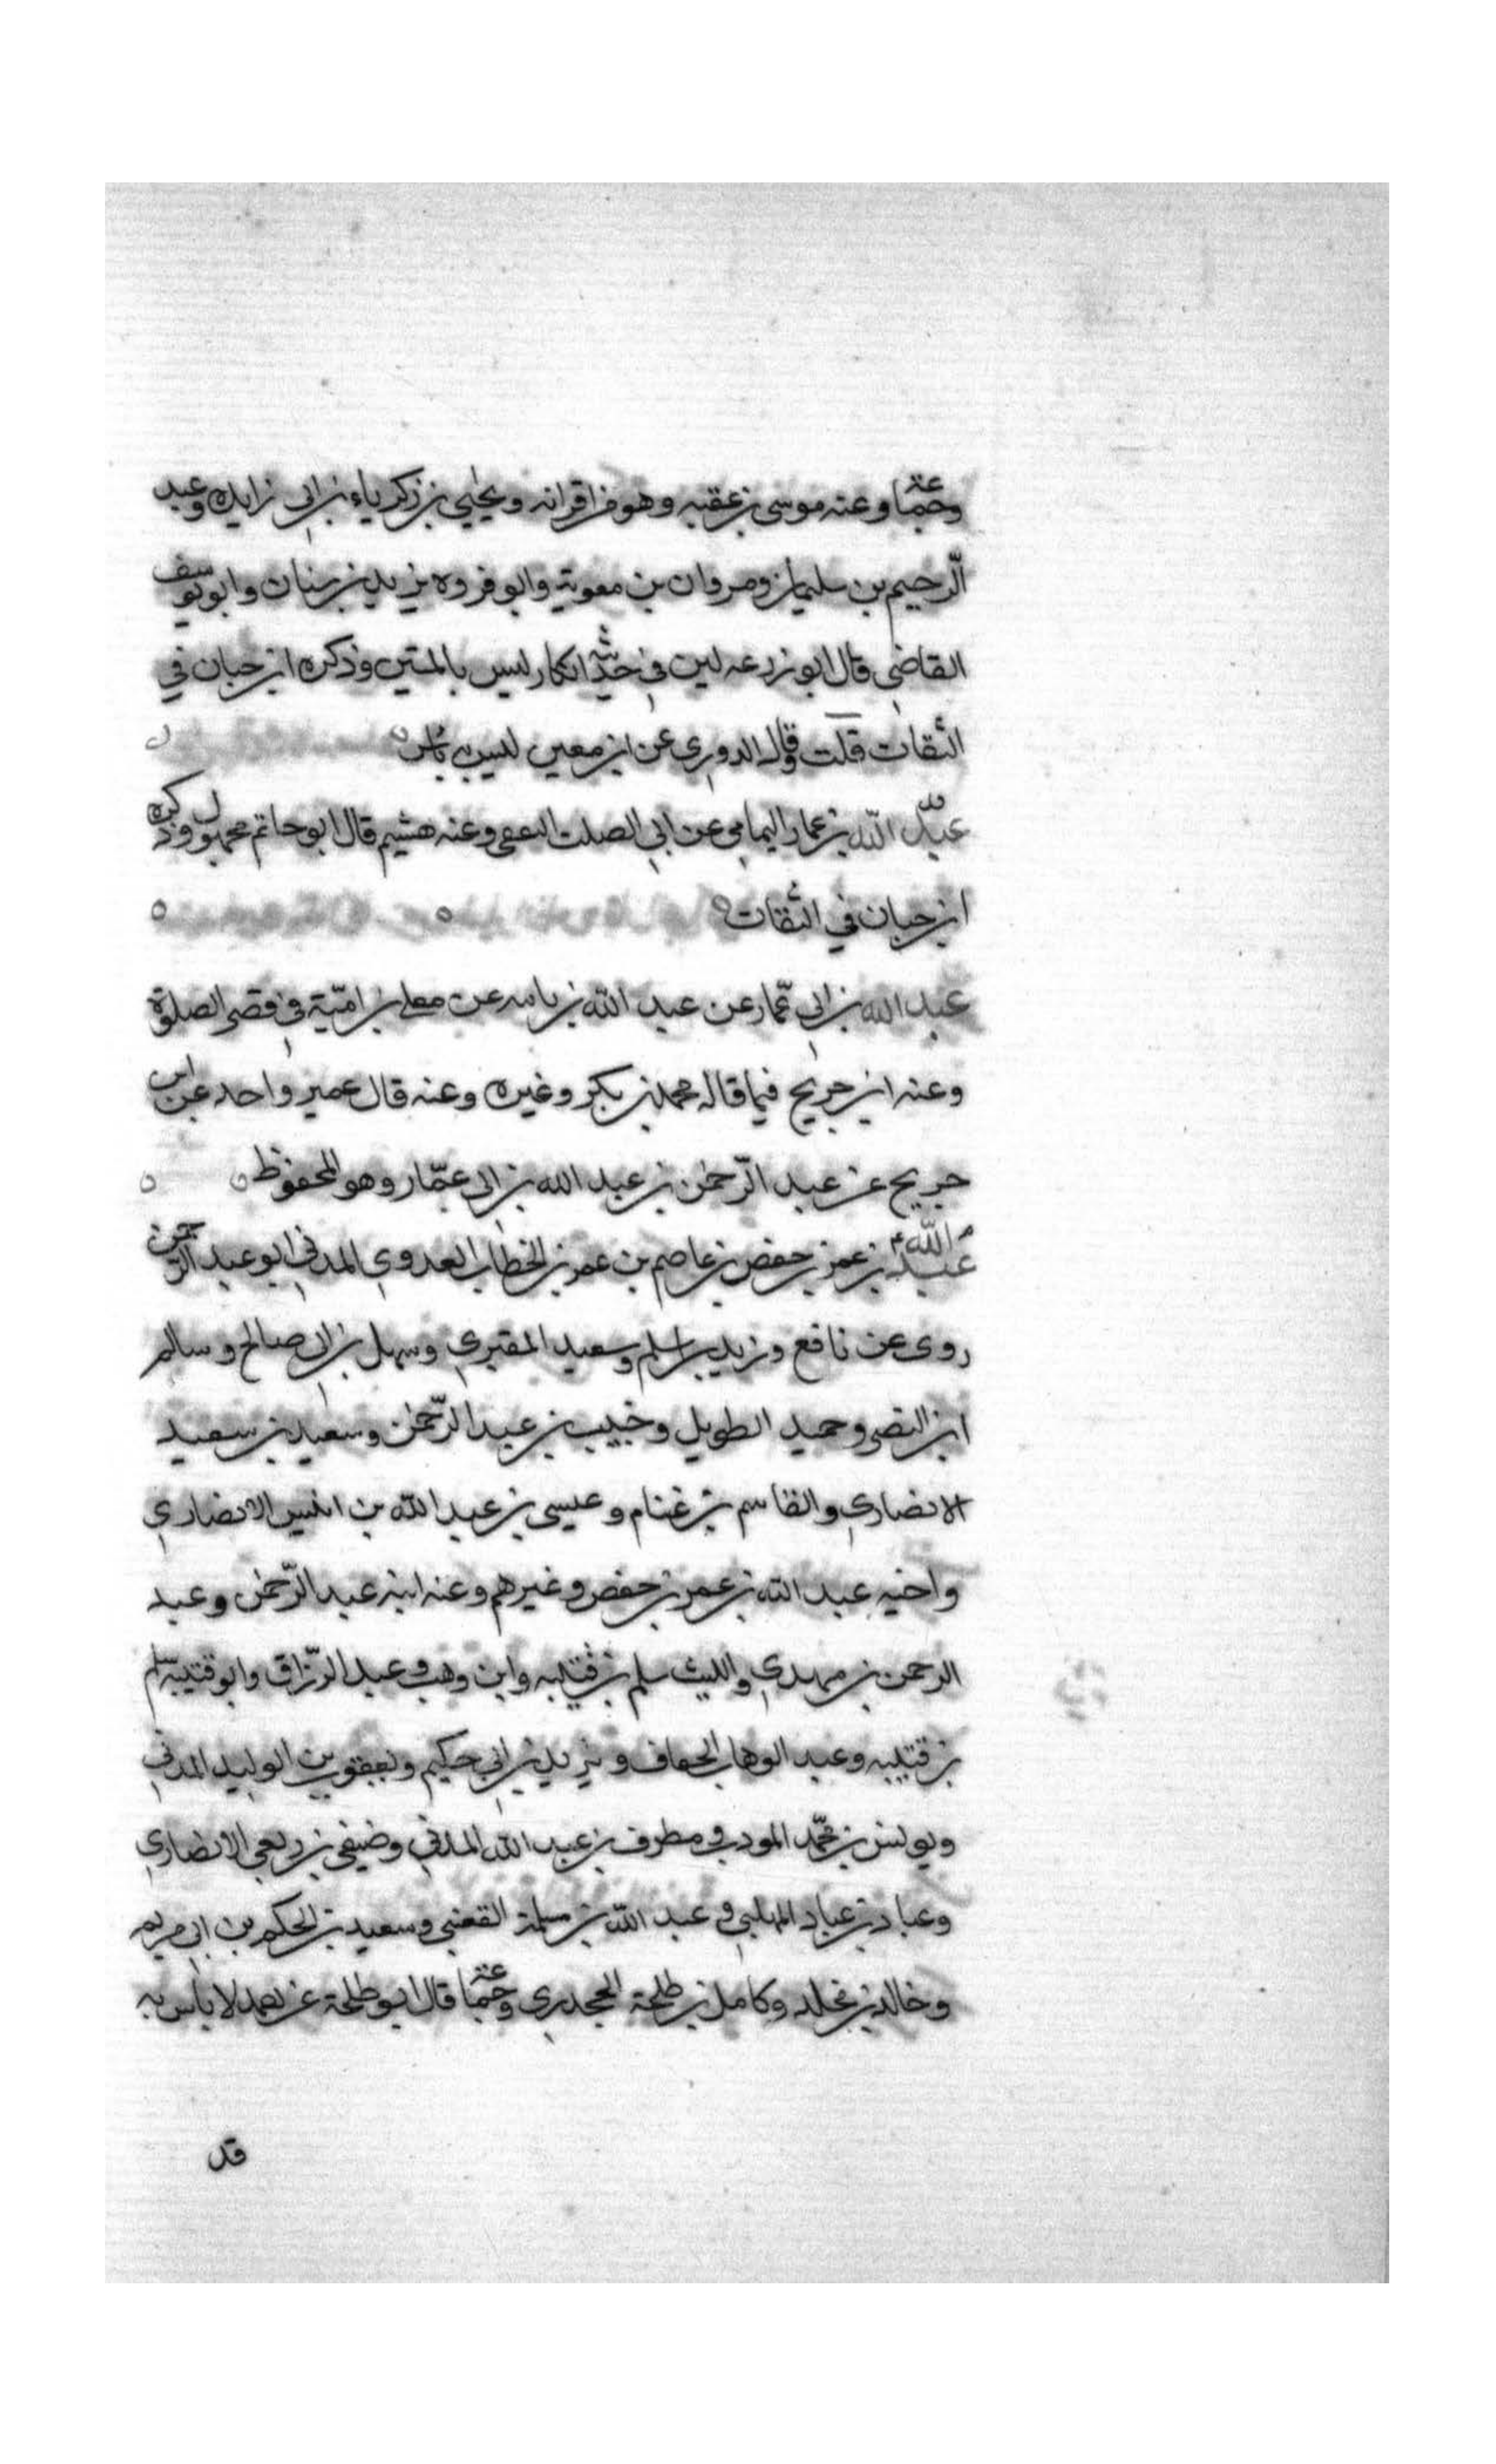 وجماعة وعنه موسى بن عقبه وهو من اقرانه ويحيى بن زكرياء بن ابي زايده وعبد
الرحيم بن سليمان ومروان بن معوية وابو فروه يزيد بن سنان وابو يوسف
القاضي قال ابو زرعه لين في حديثه انكار ليس بالمتين وذكره ابن حبان في
الثقات قلت وقال الدوري عن ابن معين ليس به باس
عبد الله بن عمار اليمامي عن ابي الصلت وعنه هشيم قال ابو حاتم مجهول وذكره
ابن حبان في الثقات
عبد الله بن ابي عمار عن عبد الله بن بامه عن معلى بن امية في قصر الصلوة
وعنه ابن جريح فيما قاله محمد بن بكر وغيره وعنه قال عمير واحد عن ابن
جريح عن عبد الرحمن بن عبد الله بن ابي عمار وهو المحفوظ
عبد الله بن عمر بن حفص بن عاصم بن عمر بن الخطاب العدوي المدني ابو عبد الرحمن
روى عن نافع وزيد بن اسلم وسعيد المقبري وسهل بن ابي صالح وسالم
ابن النضر وحميد الطويل وخبيب بن عبد الرحمن وسعيد بن سعيد
الانصاري والقاسم بن غنام وعيسى بن عبد الله بن انيس الانصاري
واخيه عبد الله بن عمر بن حفص وغيرهم وعنه ابنه عبد الرحمن وعبد
الرحمن بن مهدي والليث سلم بن قتيبه وابن وهب وعبد الرزاق وابو قتيبه سلم
بن قتيبه وعبد الوهاب الخفاف ويزيد بن ابي حكيم ويعقوب بن الوليد المدني
ويونس بن محمد المودب ومطرف بن عبد الله المدني وضيفي بن ربعي الانصاري
وعباد بن عباد المهلبي وعبد الله بن مسلمة القعنبي وسعيد بن الحكم بن ابي مريم
وخالد بن مخلد وكامل بن طلحة الجحدري وجماعة قال ابو طلحة عن احمد لا باس به
قد